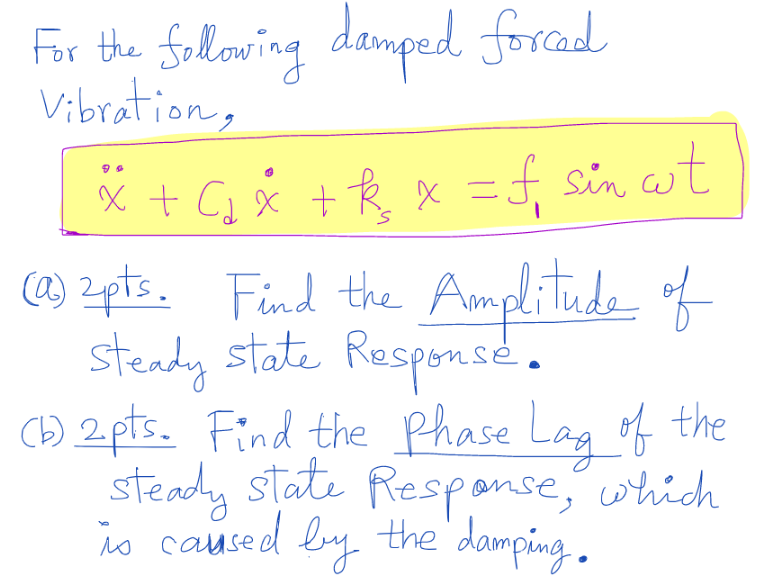 For the following damped forced
Vibration,
ẍ + C_d ẋ + k_s x = f_1 sin ωt
(a) 2pts. Find the Amplitude of
steady state Response.
(b) 2pts. Find the Phase Lag of the
steady state Response, which
is caused by the damping.